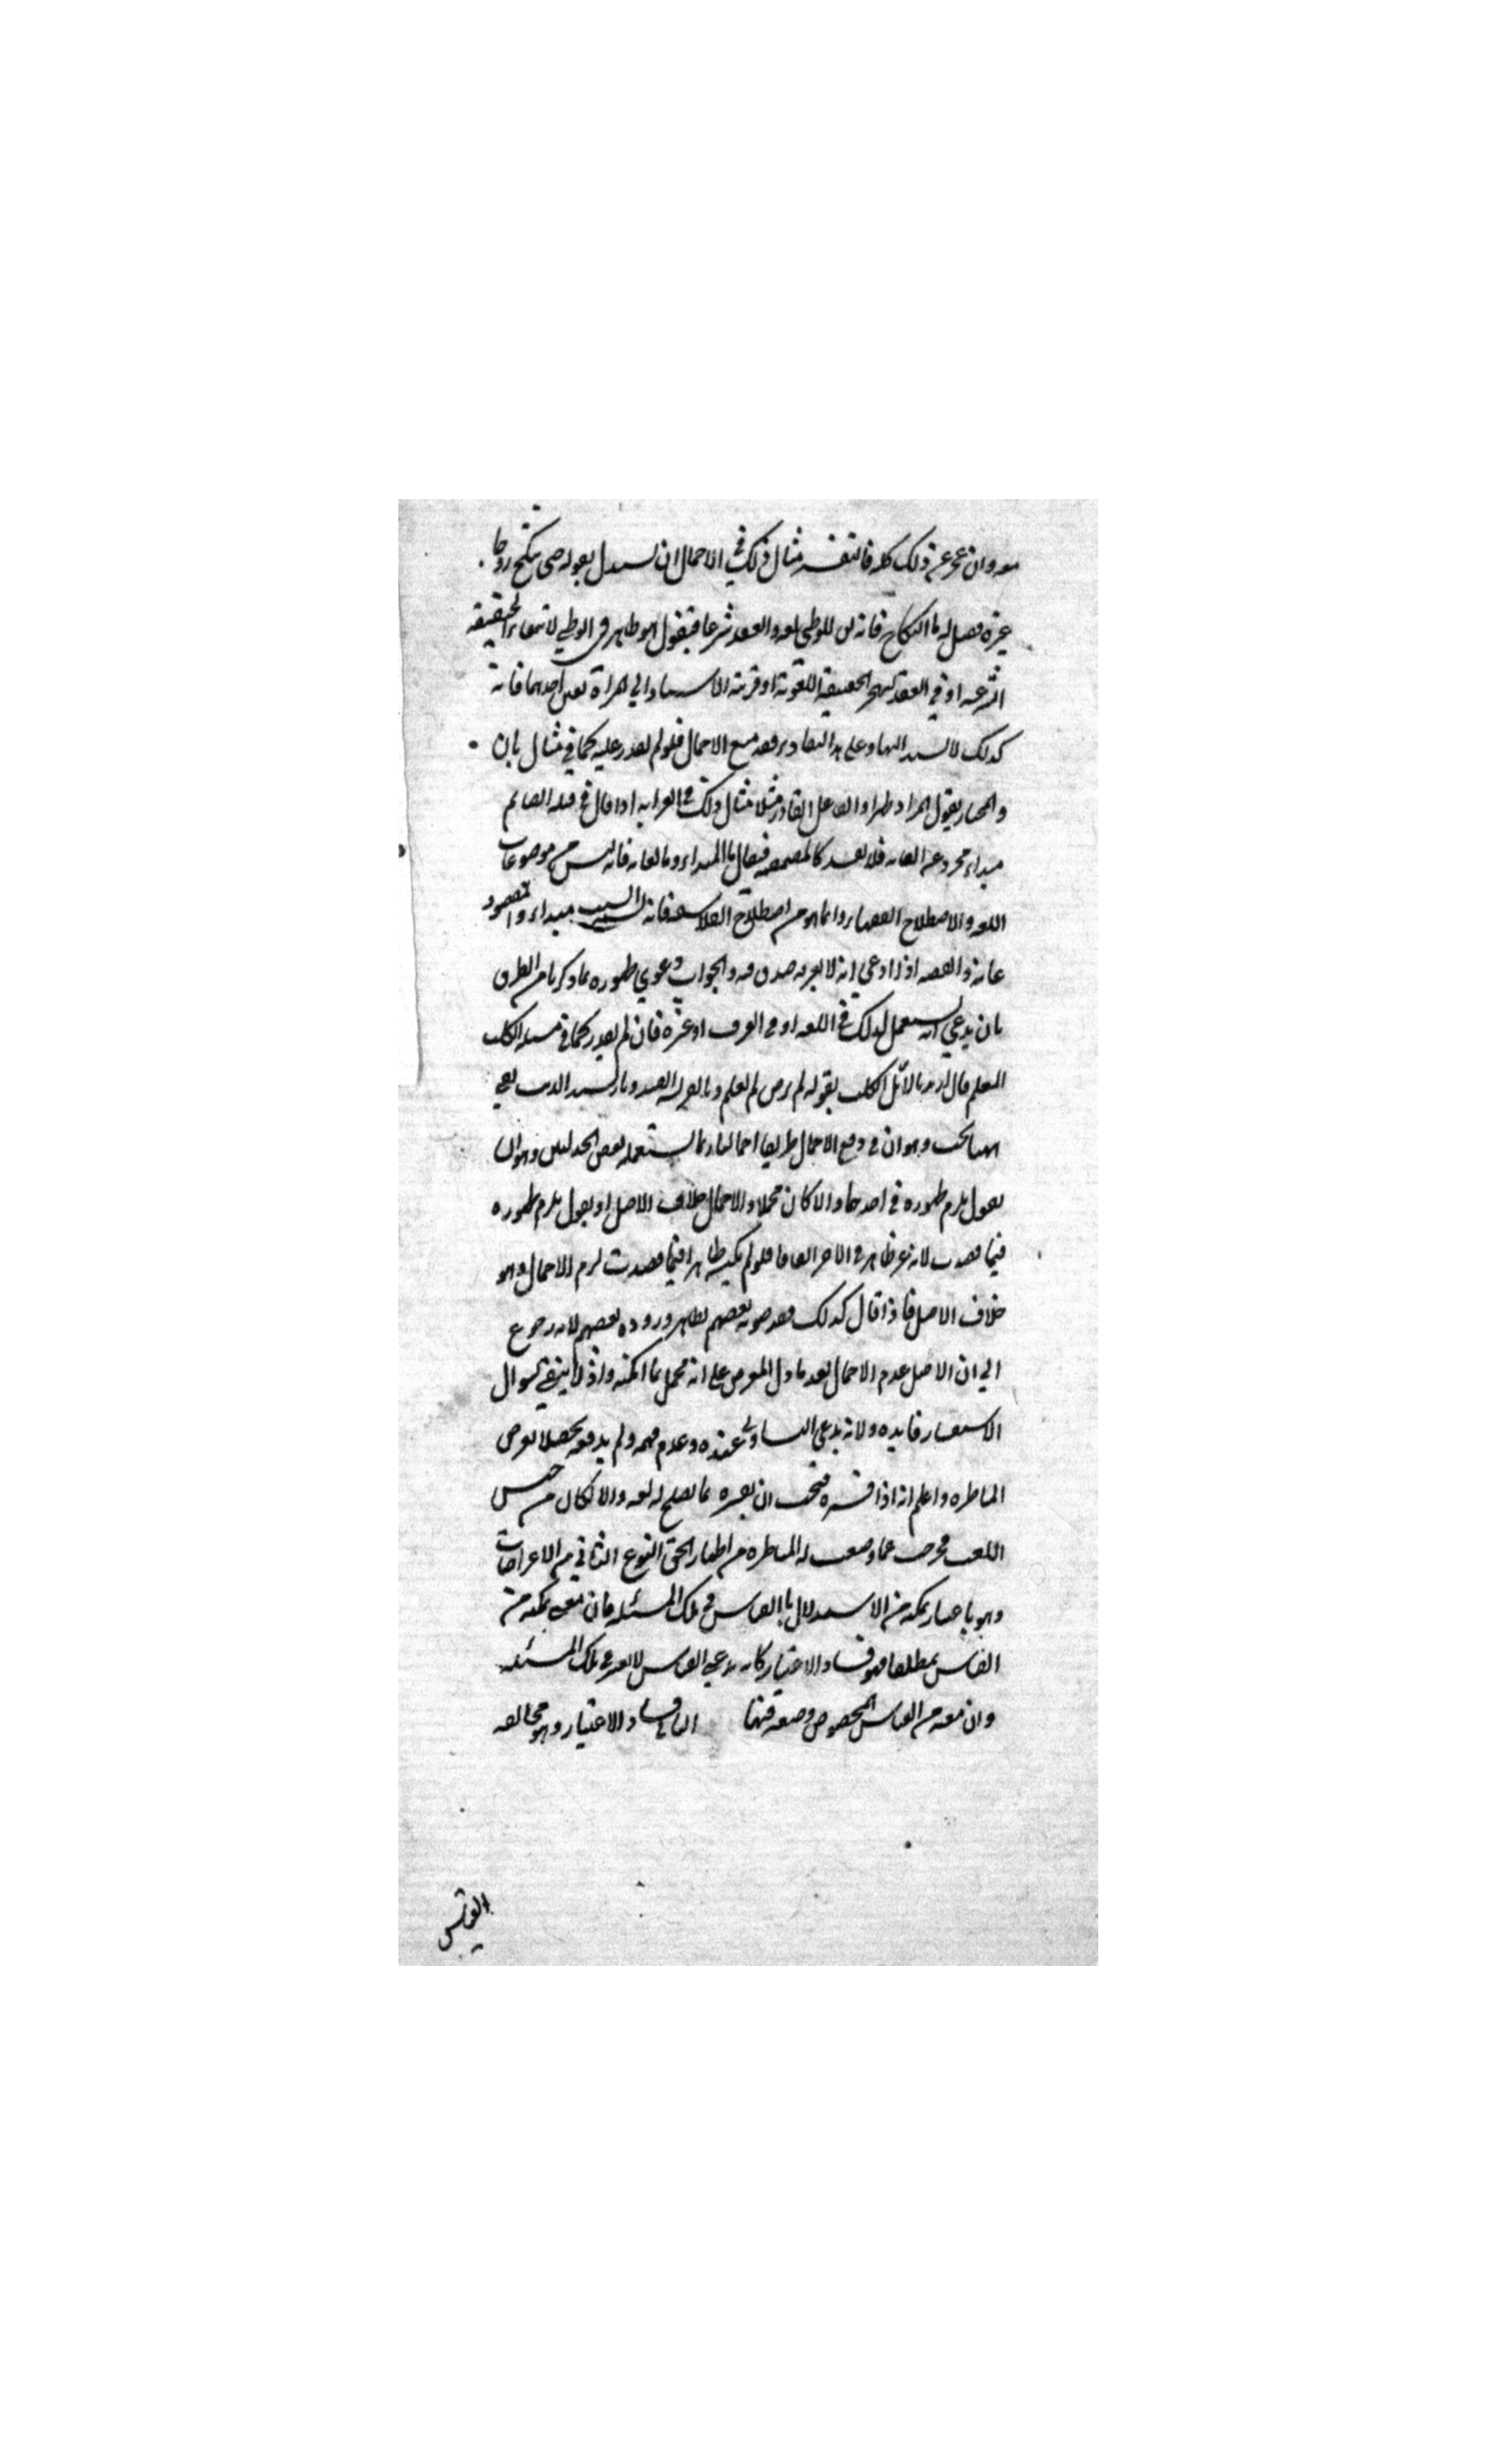 معه وان عجز عن ذلك كله فالتفسير مثال ذلك في الاجمال ان يستدل بقوله حتى تنكح زوجا
غيره فيقال له ما النكاح فانه للوطي لغة والعقد شرعا فيقول هو ظاهر في الوطي لانتفاء الحقيقة
الشرعية او في العقد لهجر الحقيقة اللغوية او قرينة الاسناد الي المراة تعين احدهما فانه
كذلك لا يسند اليها وعلى هذا التقادير فقد منع الاجمال فلو لم يقدر عليه كما في مثال بان
والمختار يقول المراد ظهر او الفاعل القادر مثلا مثال ذلك في الغرابة اذا قال في قبلة الصائم
مبداء مجرد عن الغاية فلا يفسد كالمضمضة فيقال ما المبداء وما الغاية فانه ليس من موضوعات
اللغة والاصطلاح الفقهاء وانما هو من اصطلاح الفلاسفة فانه السبب مبداء والمقصود
غاية والفقيه اذا ادعي انه لا يعرفه صدق فيه والجواب دعوي ظهوره بما ذكرنا من الطرق
بان يدعي انه يستعمل لذلك في اللغة او في العرف او غيره فان لم يقدر كما في مسئلة الكلب
المعلم قال اريد بالايل الكلب بقوله لم يرض لم يعلم وبالفريسة الصيد وبالسيد الذيب بقي
ههنا بحث وهو ان في دفع الاجمال طريقا اجماليا ربما يستعمله بعض الجدليين وهو ان
يقول يلزم ظهوره في احدهما والا كان مجملا والاجمال خلاف الاصل او يقول يلزم ظهوره
فيما قصدت لانه غير ظاهر في الاخر اتفاقا فلو لم يكن ظاهرا فيما قصدت لزم الاجمال وهو
خلاف الاصل فاذا قال كذلك فقد صوبه بعضهم نظرا ورده بعضهم لانه رجوع
الي ان الاصل عدم الاجمال بعد ما دل المعترض على انه مجمل بما امكنه واذ لا يبقي لسوال
الاستفسار فايدة ولانه يدعي التساوي عنده وعدم فهمه ولم يدفعه تحصيلا لغرض
المناظرة واعلم انه اذا فسره فيجب ان يفسره بما يصلح له لغة والا لكان من جنس
اللعب فخرجت عما وضعت له المناظرة من اظهار الحق النوع الثاني من الاعتراضات
وهو باعتبار تمكنه من الاستدلال بالقياس في تلك المسئلة فان منع تمكنه من
القياس مطلقا فهو فساد الاعتبار كانه يدعي القياس لا يعتبر في تلك المسئلة
وان منعه من القياس المخصوص وضعه فمنها الثاني فساد الاعتبار وهو مخالفة
القياس